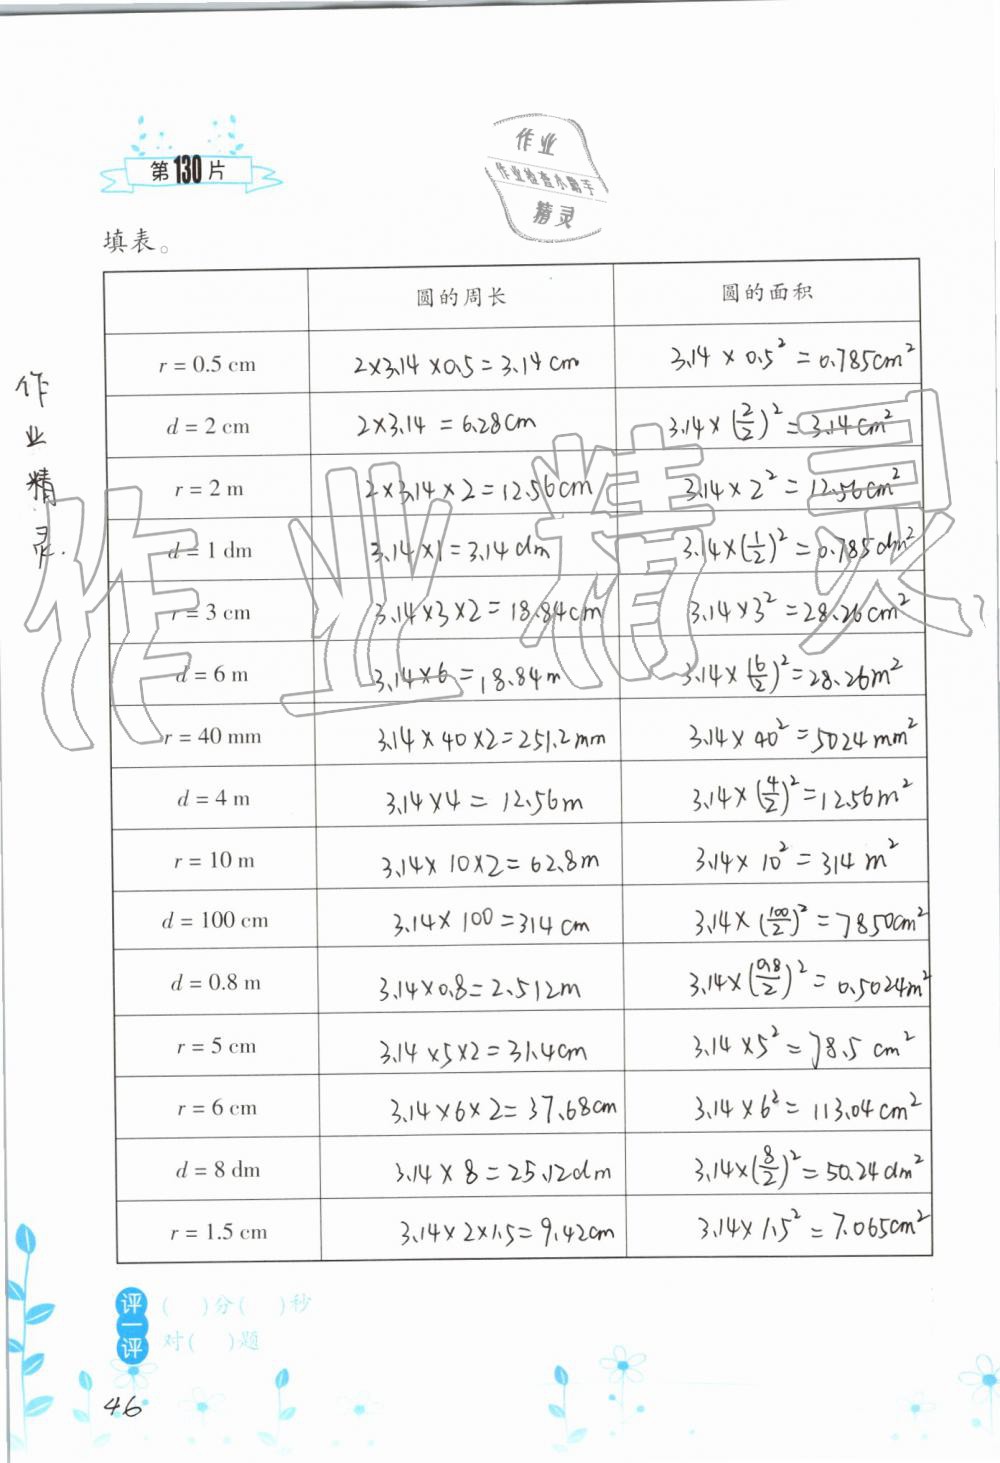 第130片
作业
作业检查小助手
精灵
填表。
圆的周长 圆的面积
r = 0.5 cm 2×3.14×0.5=3.14cm 3.14×0.5²=0.785cm²
d = 2 cm 2×3.14=6.28cm 3.14×(2/2)²=3.14cm²
r = 2 m 2×3.14×2=12.56cm 3.14×2²=12.56cm²
d = 1 dm 3.14×1=3.14dm 3.14×(1/2)²=0.785dm²
r = 3 cm 3.14×3×2=18.84cm 3.14×3²=28.26cm²
d = 6 m 3.14×6=18.84m 3.14×(6/2)²=28.26m²
r = 40 mm 3.14×40×2=251.2mm 3.14×40²=5024mm²
d = 4 m 3.14×4=12.56m 3.14×(4/2)²=12.56m²
r = 10 m 3.14×10×2=62.8m 3.14×10²=314m²
d = 100 cm 3.14×100=314cm 3.14×(100/2)²=7850cm²
d = 0.8 m 3.14×0.8=2.512m 3.14×(0.8/2)²=0.5024m²
r = 5 cm 3.14×5×2=31.4cm 3.14×5²=78.5cm²
r = 6 cm 3.14×6×2=37.68cm 3.14×6²=113.04cm²
d = 8 dm 3.14×8=25.12dm 3.14×(8/2)²=50.24dm²
r = 1.5 cm 3.14×2×1.5=9.42cm 3.14×1.5²=7.065cm²
作业精灵.
作业精灵
评一评
( )分( )秒
对( )题
46